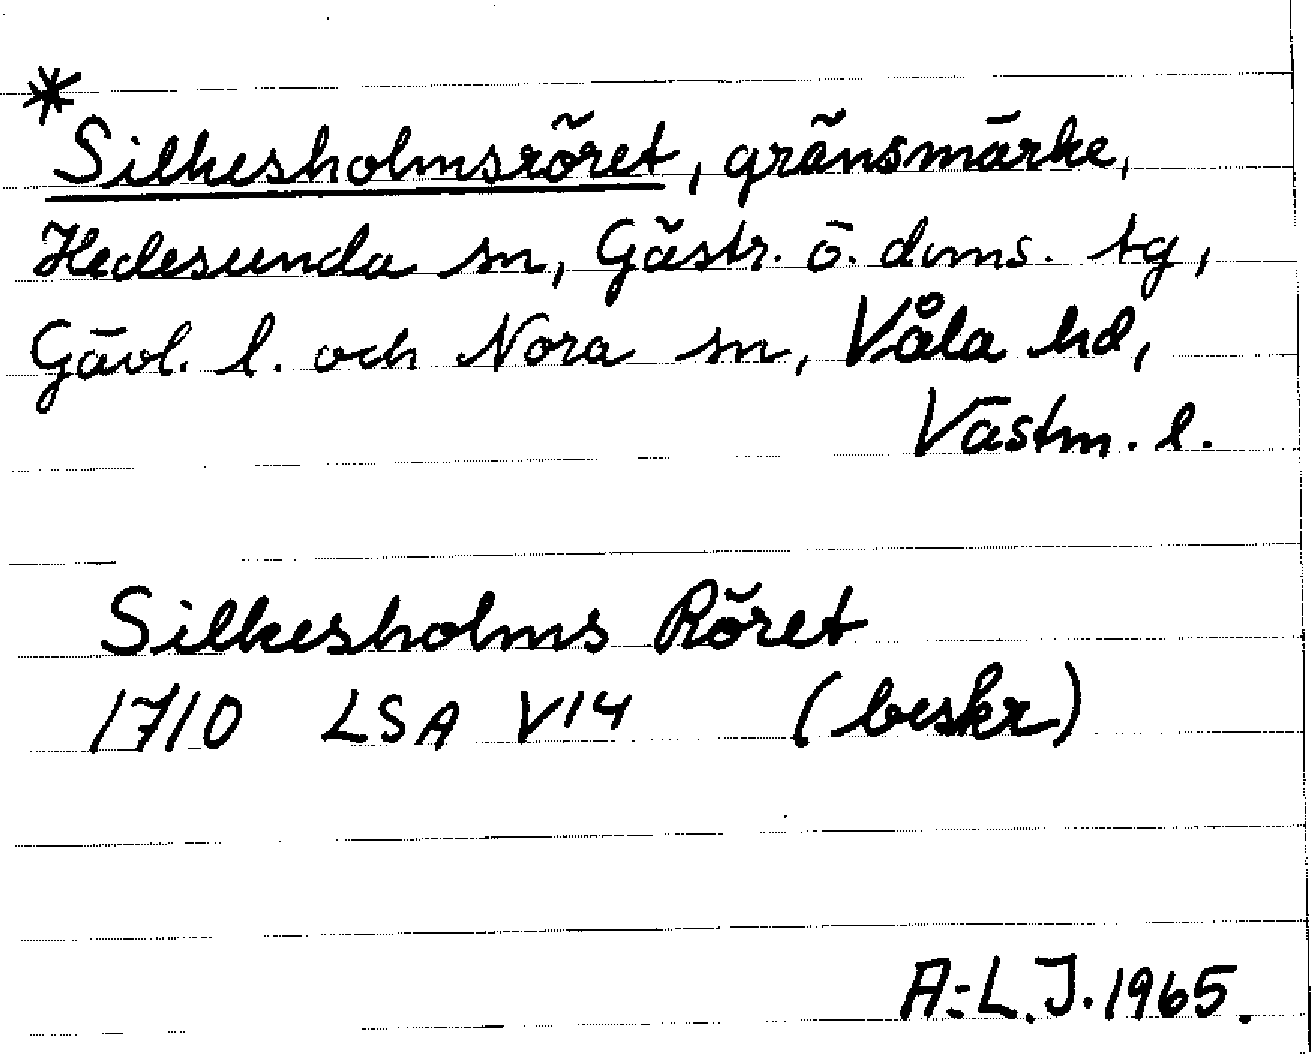 *Silkesholmsröret, gränsmärke,
Hedesunda sn, Gästr. ö. doms. tg,
Gävl. l. och Nora sn, Våla hd,
Västm. l.
Silkesholms Röret
1710 LSA V14 (beskr)
A.-L. J. 1965.